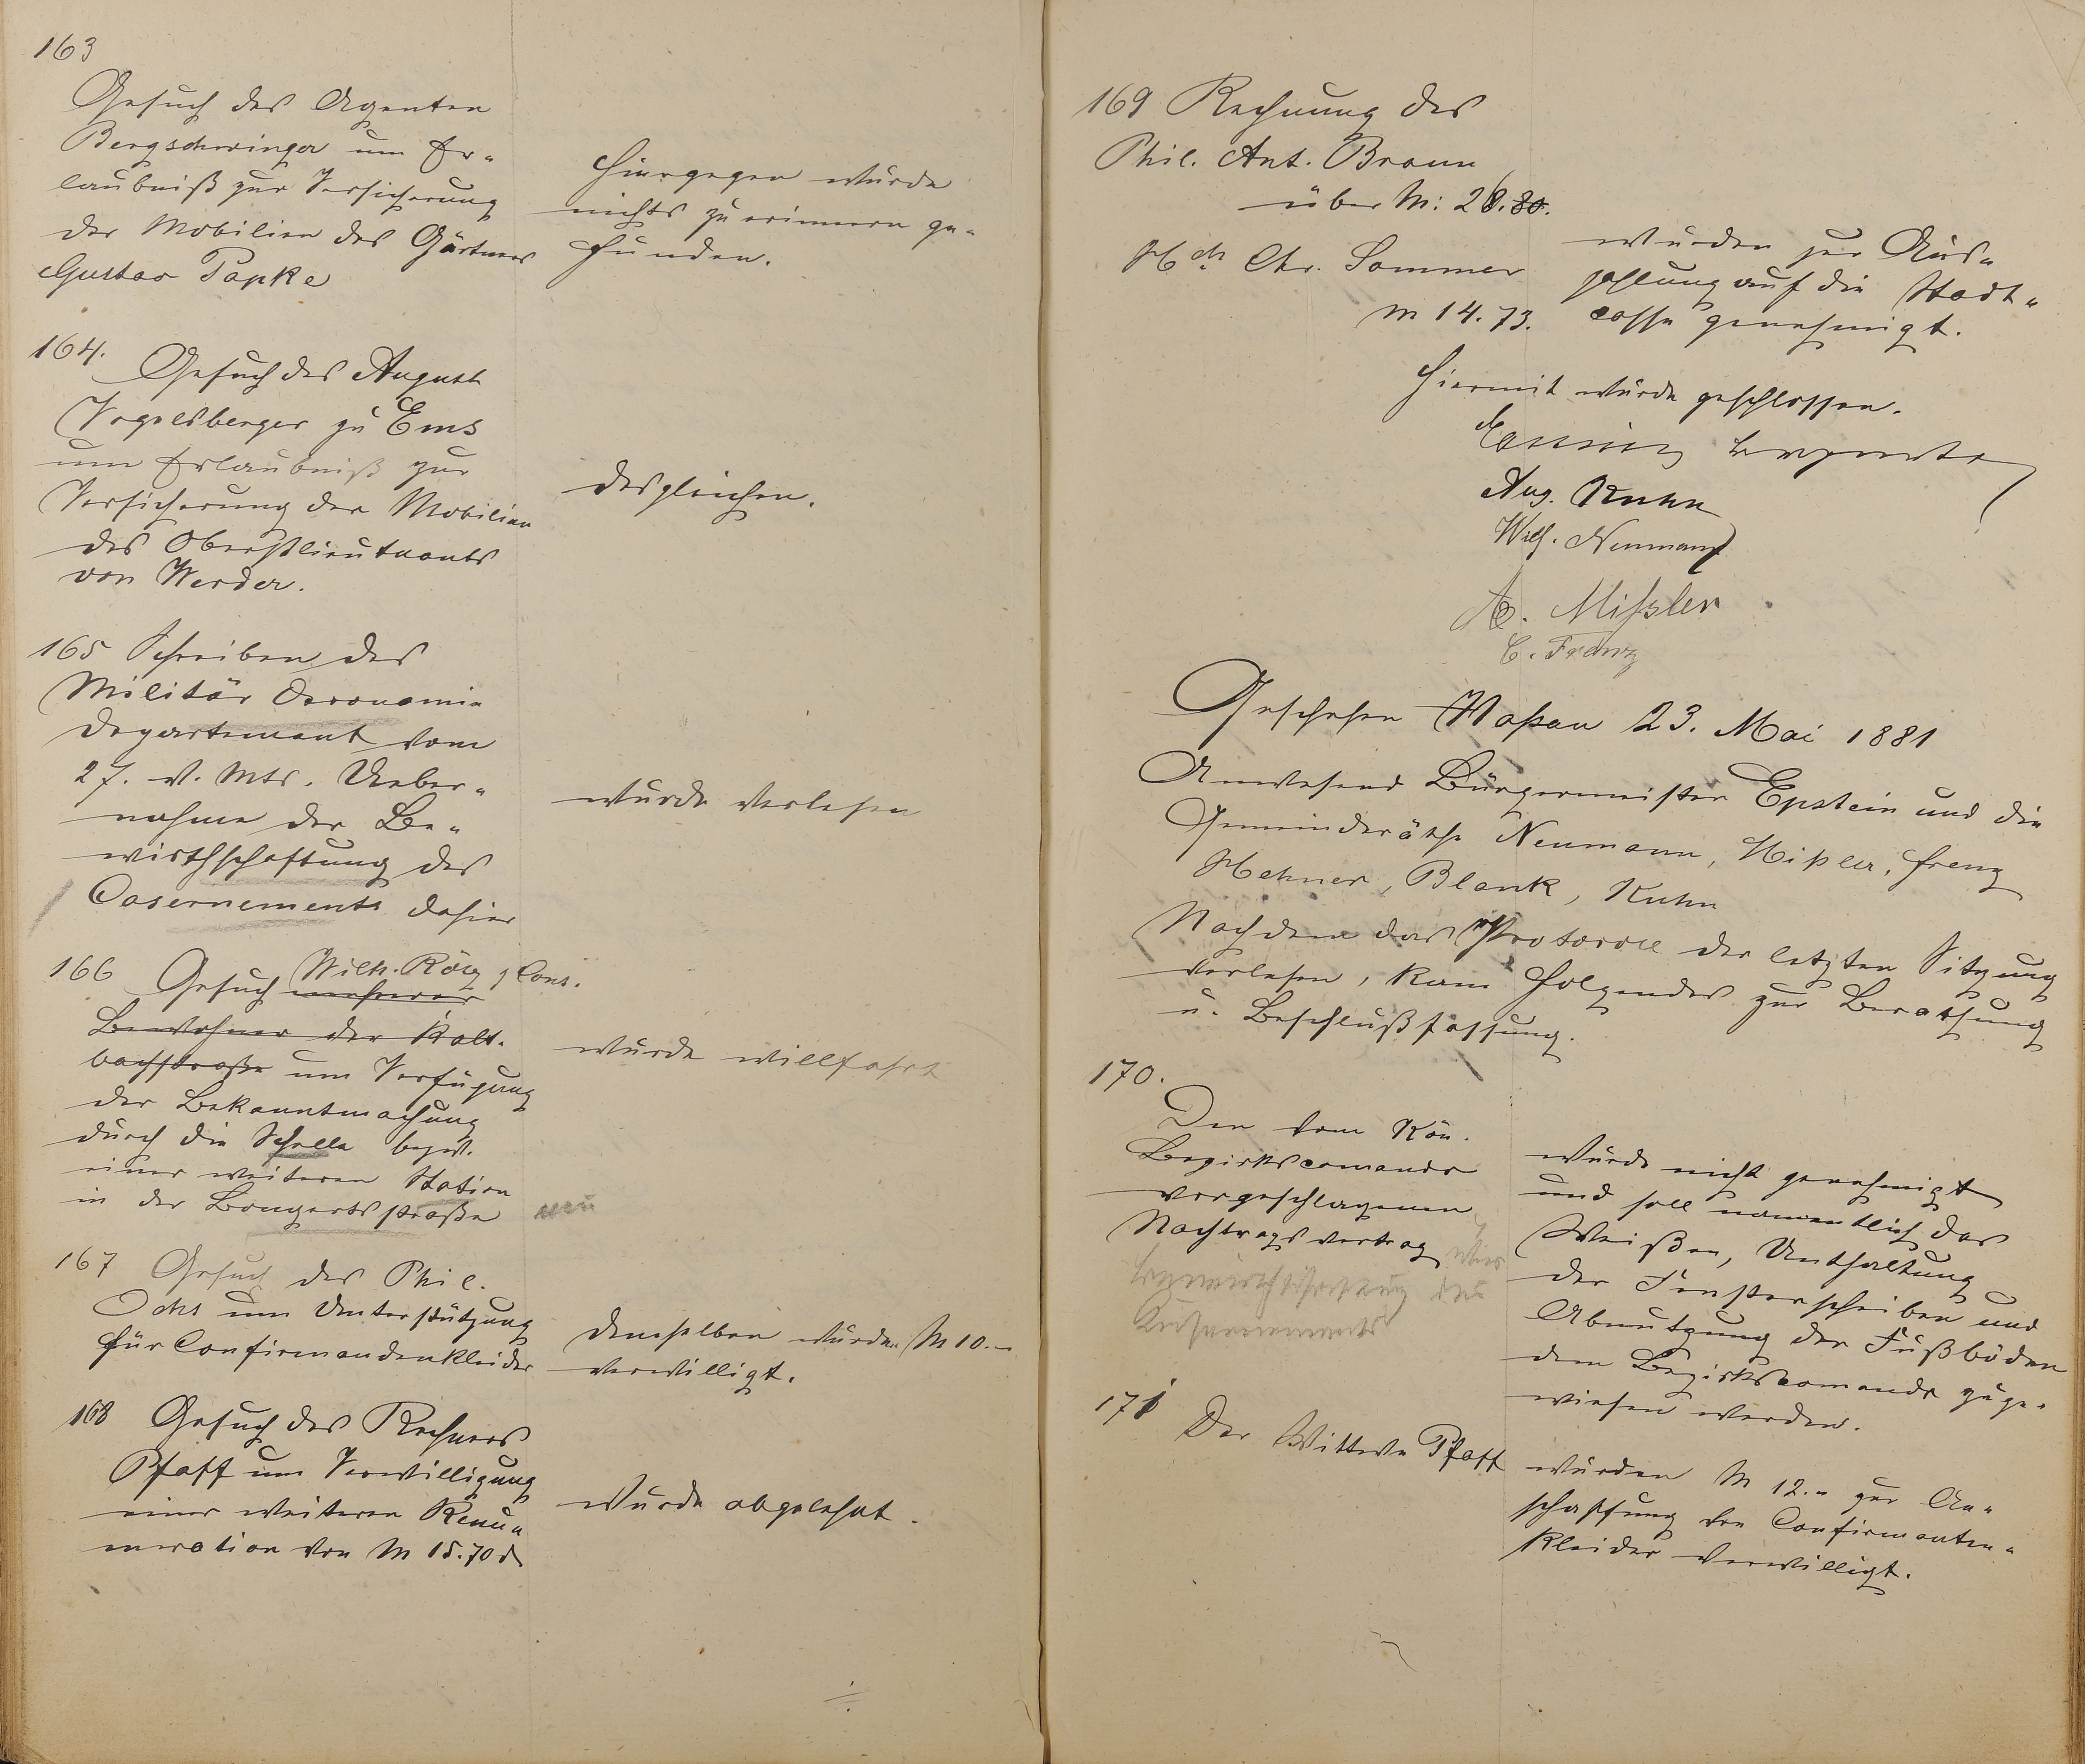 163
Gesuch des Agenten
Bergschwinger um Er-
laubniß zur Versicherung
der Mobilien des Gärtners
Gustav Papke
Hiergegen wurde
nichts zu erinnern ge-
funden.
164.
Gesuch des August
Vogelsberger zu Ems
um Erlaubniß zur
Versicherung der Mobilien
des Oberstlieutnants
von Werder.
desgleichen.
165 Schreiben des
Militär Oeconomie
Departement vom
27. v. Mts. Ueber-
nahme der Be-
wirthschaftung des
Casernements dahier
wurde verlesen
166 Gesuch mehrerer Wilh. Rösz & Cons.
Bewohner der Kalt-
bachstraße um Verfügung
der Bekanntmachung
durch die Schelle bezw.
einer weiteren Station
in der Bongertsstraße
neu
wurde willfahrt
167 Gesuch des Phil.
Ochs um Unterstützung
für Confirmandenkleider
demselben wurden M 10.-
verwilligt.
168 Gesuch des Rechners
Pfaff um Verwilligung
einer weiteren Remu-
neration von M 15.70 d
wurde abgelehnt.
169 Rechnung des
Phil. Ant. Braun
über M: 28.80.
Hch Chr. Sommer
M 14.73.
wurden zur Aus-
zahlung auf die Stadt-
casse genehmigt.
Hiermit wurde geschlossen.
Aug. Kuhn
Wilh. Neumann
A. Mißler
C. Franz
Geschehen Naßau 23. Mai 1881
Anwesend Bürgermeister Epstein und die
Gemeinderäthe Neumann, Mißler, Franz
Hehner, Blank, Kuhn
Nachdem das Protocoll der letzten Sitzung
verlesen, kam Folgendes zur Berathung
u. Beschlußfassung.
170.
Den vom Kön.
Bezirkscomando
vorgeschlagenen
Nachtragsvertrag
Bewirthschaftung des
Casernements
wurde nicht genehmigt
und soll namentlich das
Weißen, Unthaltung
der Fensterscheiben und
Abnutzung der Fußböden
dem Bezirkscomando zuge-
wiesen werden.
171 Der Wittwe Pfaff
wurden M 12.- zur An-
schaffung von Confirmanten-
kleider verwilligt.